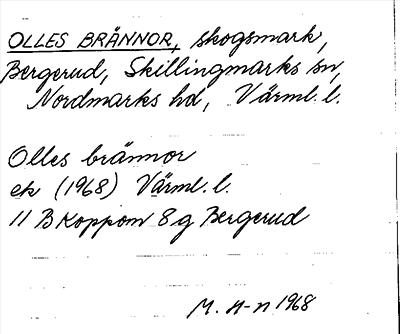 OLLES BRÄNNOR, skogsmark,
Bergerud, Skillingmarks sn,
Nordmarks hd, Värml. l.
Olles brännor
ek (1968) Värml. l.
11 B Koppom 8 g Bergerud
M. H-n 1968